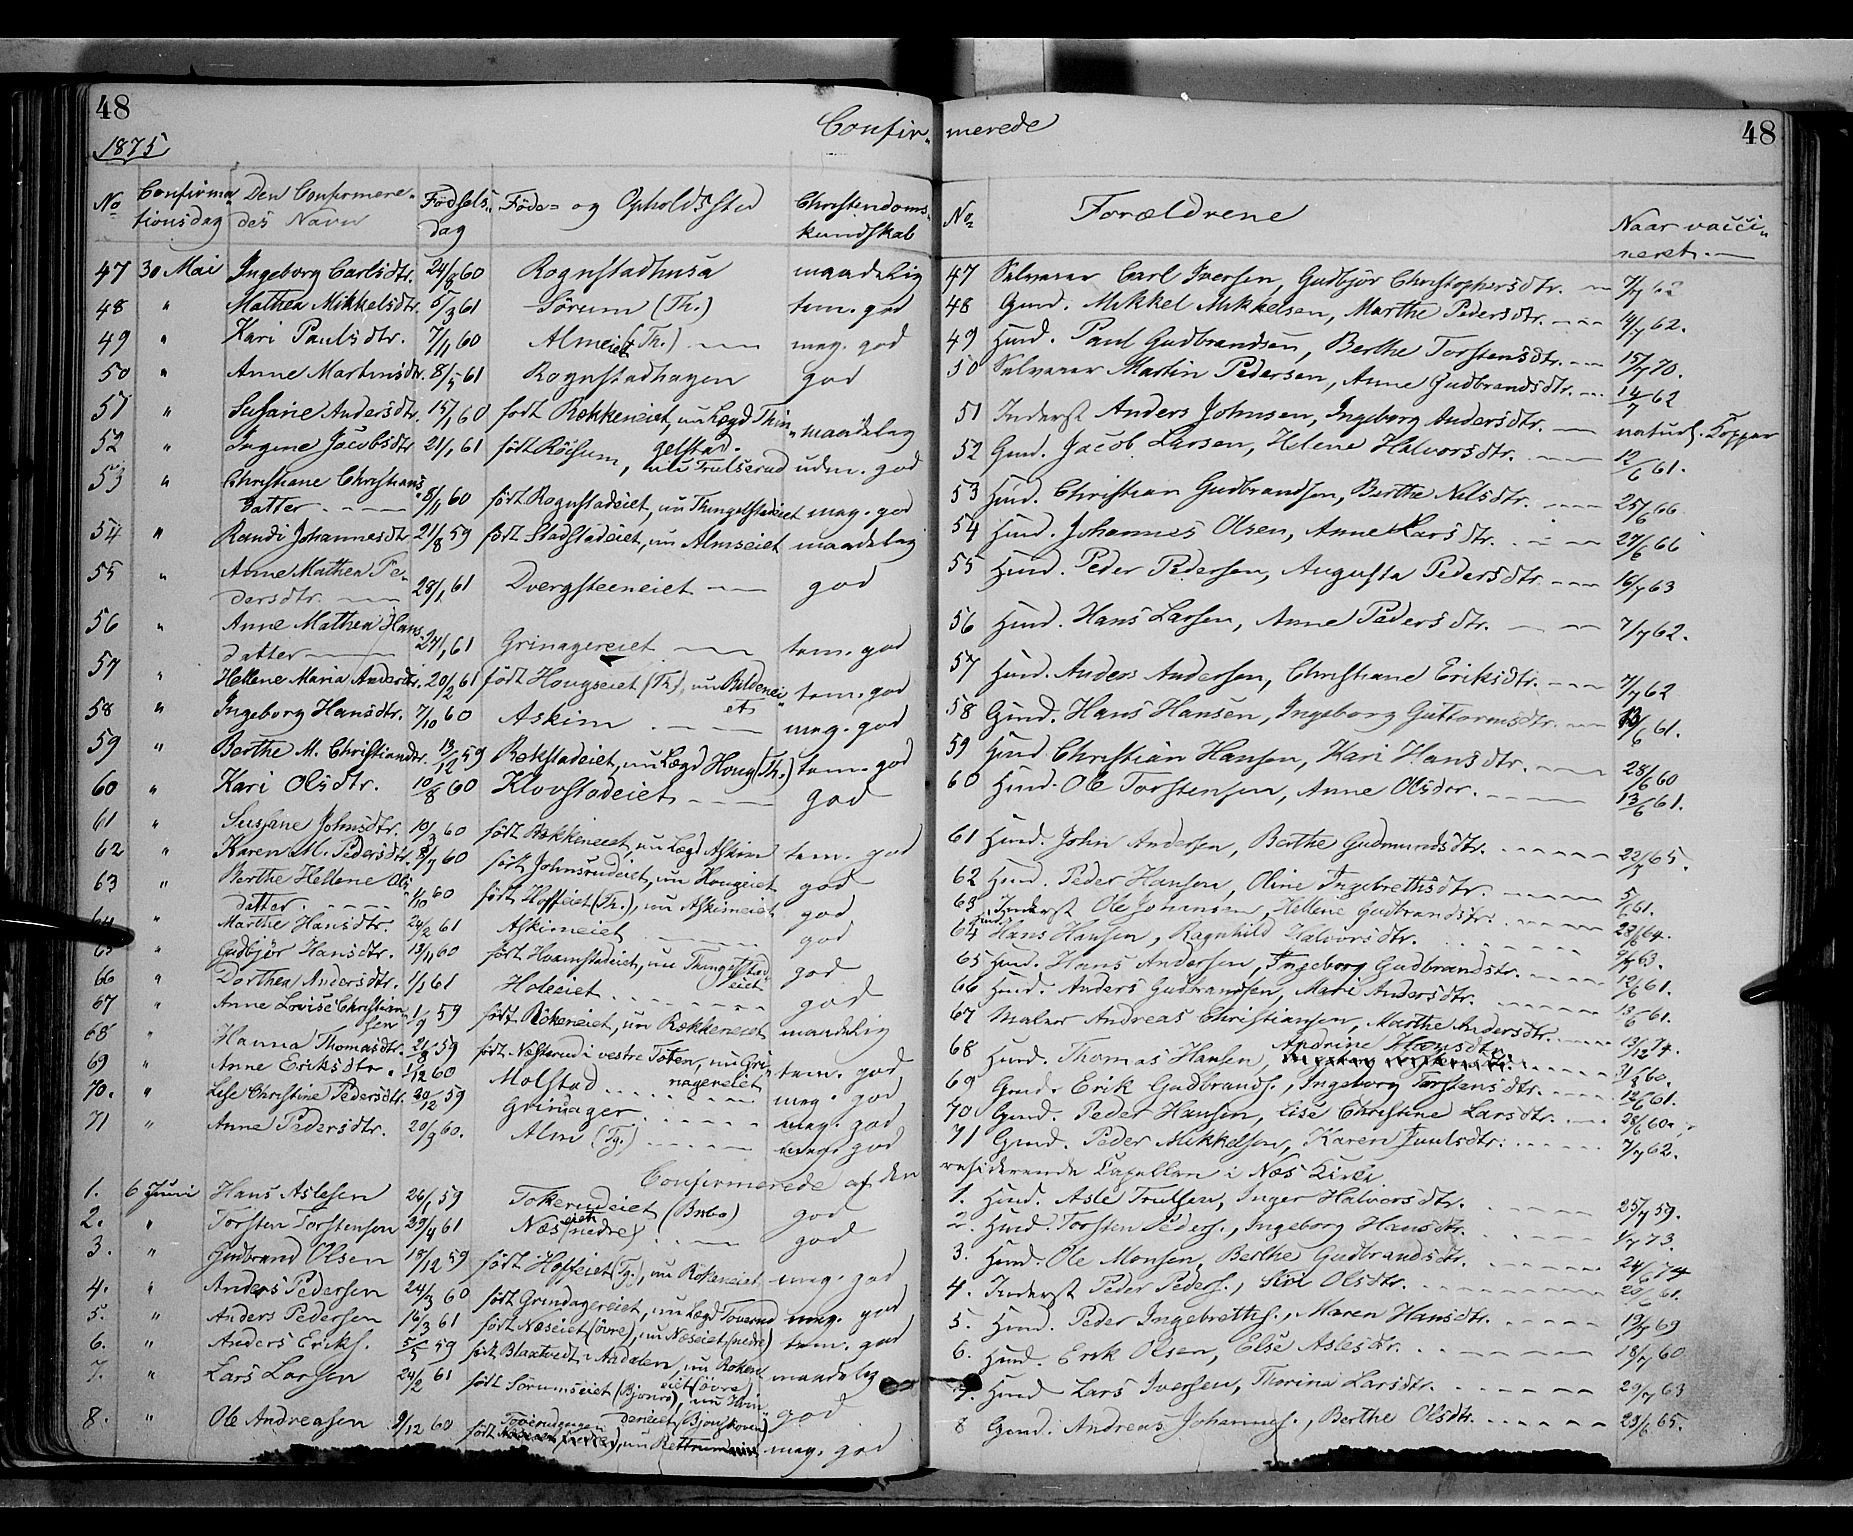 48
1875
Confir-
No
Confirmationsdag
Den Confirmeredes Navn
Fødselsdag
Føde- og Opholdssted
Christendomskundskab
47 30 Mai Ingeborg Carlsdtr. 24/8 60 Rognstadhusa maadelig
48 " Mathea Mikkelsdtr. 5/3 61 Sørum (Th.) tem. god
49 " Kari Paulsdtr. 7/11 60 Almeiet (Th.) meg. god
50 " Anne Martinsdtr. 8/5 61 Rognstadhagen god
51 " Susane Andersdtr. født Rækkeneiet, nu Lægd Thingelstad. maadelig
52 " Ingine Jacobsdtr 21/1 61 født Røisum, nu Trulserud udm. god
53 " Christiane Christians
datter 8/11 60 født Rognstadeiet, nu Thingelstadeiet meg. god
54 " Randi Johannesdtr 21/8 59 født Stadstadeiet, nu Almseiet maadelig
55 " Anne Mathea Pe-
dersdtr. 28/1 61 Dvergsteeneiet god
56 " Anne Mathea Hans-
datter 27/1 61 Grinagereiet tem. god
57 " Hellene Maria Andersdtr. 20/2 61 født Hougseiet (Th), nu Bildeneiet tem. god
58 " Ingeborg Hansdtr. 7/10 60 Askim meg. god
59 " Berthe M. Christiansdtr. 13/12 59 Rækstadeiet, nu Lægd Houg (Th.) tem. god
60 " Kari Olsdtr. 10/8 60 Klovstadeiet god
61 " Susane Johnsdtr. 19/3 60 født Rækkeneiet, nu Lægd Askim tem. god
62 " Karen M. Pedersdtr. 8/7 60 født Johnsrudeiet, nu Hougeiet god
63 " Berthe Hellene Ols
datter 4/10 60 født Hoffeiet (Th.), nu Askimeiet god
64 " Marthe Hansdtr. 24/2 61 Askimeiet god
65 " Gudbjør Hansdtr. 13/11 60 født Hvamstadeiet, nu Thingelstadeiet god
66 " Dorthea Andersdtr. 1/1 61 Holeeiet god
67 " Anne Lovise Christiansen 1/9 59 født Rokeneiet, nu Rækkeneiet maadelig
68 " Hanna Thomasdtr. 21/8 59 født Næsterud i vestre Toten, nu Grinagereiet tem. god
69 " Anne Eriksdtr. 1/12 60 Molstad meg. god
70. " Lise Christine Pedersdtr. 30/12 59 Grinager meg. god
71 " Anne Pedersdtr. 20/9 60. Alm (Tg.) meg. god
Confirmerede af den
1. 6 Juni Hans Aslesen 26/1 59 Tokerudeiet (Bnbo) god
2. " Torsten Torstensen 29/4 61 Næseiet (nedre) god
3. " Gudbrand Olsen 18/12 59 født Hoffeiet (Tg.), nu Rokeneiet meg. god
4. " Anders Pedersen 24/3 60 født Grinagereiet, nu Lægd Toverud meg. god
5. " Anders Pedersen 16/3 61 født Næseiet (øvre), nu Næseiet (nedre) tem. god
6. " Anders Eriks. 5/5 59 født Blaatvedt i Aadalen, nu Rokeneiet (øvre) maadelig
7. " Lars Larsen 24/2 61 født Sørumseiet (Bjonro), nu god
8. " Ole Andreasen 9/12 60 født meg. god
merede
48
No
Forældrene
Naar vaccineret.
47 Selveier Carl Iversen, Gudbjør Christophersdtr.
48 Gmd. Mikkel Mikkelsen, Marthe Pedersdtr. 14/7 62.
49 Husd. Paul Gudbrandsen, Berthe Torstensdtr. 15/7 70.
50 Selveier Martin Pedersen, Anne Gudbrandsdtr. 14/7 62
51 Inderst Anders Johnsen, Ingeborg Andersdtr. naturl. Kopper
52 Gmd. Jacob Larsen, Helene Halvorsdtr. 12/6 61.
53 Husd. Christian Gudbrandsen, Berthe Nilsdtr. 25/6 66
54 Husd. Johannes Olsen, Anne Larsdtr. 27/6 66
55 Husd. Peder Pedersen, Augusta Pedersdtr. 16/7 63
56 Husd. Hans Larsen, Anne Pedersdtr. 7/7 62.
57 Husd. Anders Andersen, Christiane Eriksdtr. 7/7 62
58 Gmd. Hans Hansen, Ingeborg Guttormsdtr. 13/6 61.
59 Husd. Christian Hansen, Kari Hansdtr. 28/6 60
60 Husd. Ole Torstensen, Anne Olsdtr. 13/6 61.
61 Husd. John Andersen, Berthe Gudmundsdtr. 22/7 65.
62 Husd. Peder Hansen, Oline Ingebrethsdtr. 5/6 61.
63 Inderst Ole Johansen, Hellene Gudbrandsdtr. 23/6 64.
64 Husd. Hans Hansen, Ragnhild Halvorsdtr.
65 Husd. Hans Andersen, Ingeborg Gudbrandsdtr. 9/7 63.
66 Husd. Anders Gudbrandsen, Mari Andersdtr. 12/6 61.
67 Maler Andreas Christiansen, Marthe Andersdtr. 13/6 61.
68 Husd. Thomas Hansen, Andrine Hansdtr. 13/12 74.
69 Gmd. Erik Gudbrands., Ingeborg Torstensdtr. 21/8 60.
70 Gmd. Peder Hansen, Lise Christine Larsdtr. 12/6 61.
71 Gmd. Peder Mikkelsen, Karen Juulsdtr. 28/6 60.
7/7 62.
residerende Capellan i Næs Kirke.
1. Husd. Asle Trulsen, Inger Halvorsdtr. 25/7 59.
2. Husd. Torsten Peders., Ingeborg Hansdtr. 1/7 73.
3. Husd. Ole Monsen, Berthe Gudbrandsdtr. 24/6 74
4. Inderst Peder Peders., Siri Olsdtr. 20/6 61.
5. Husd. Peder Ingebreths., Maren Hansdtr. 19/7 69
6. Husd. Erik Olsen, Else Aslesdtr. 18/7 60
7. Husd Lars Iversen, Thorina Larsdtr. 29/7 63
8 Gmd. Andreas Johannes., Berthe Olsdtr. 29/6 65.